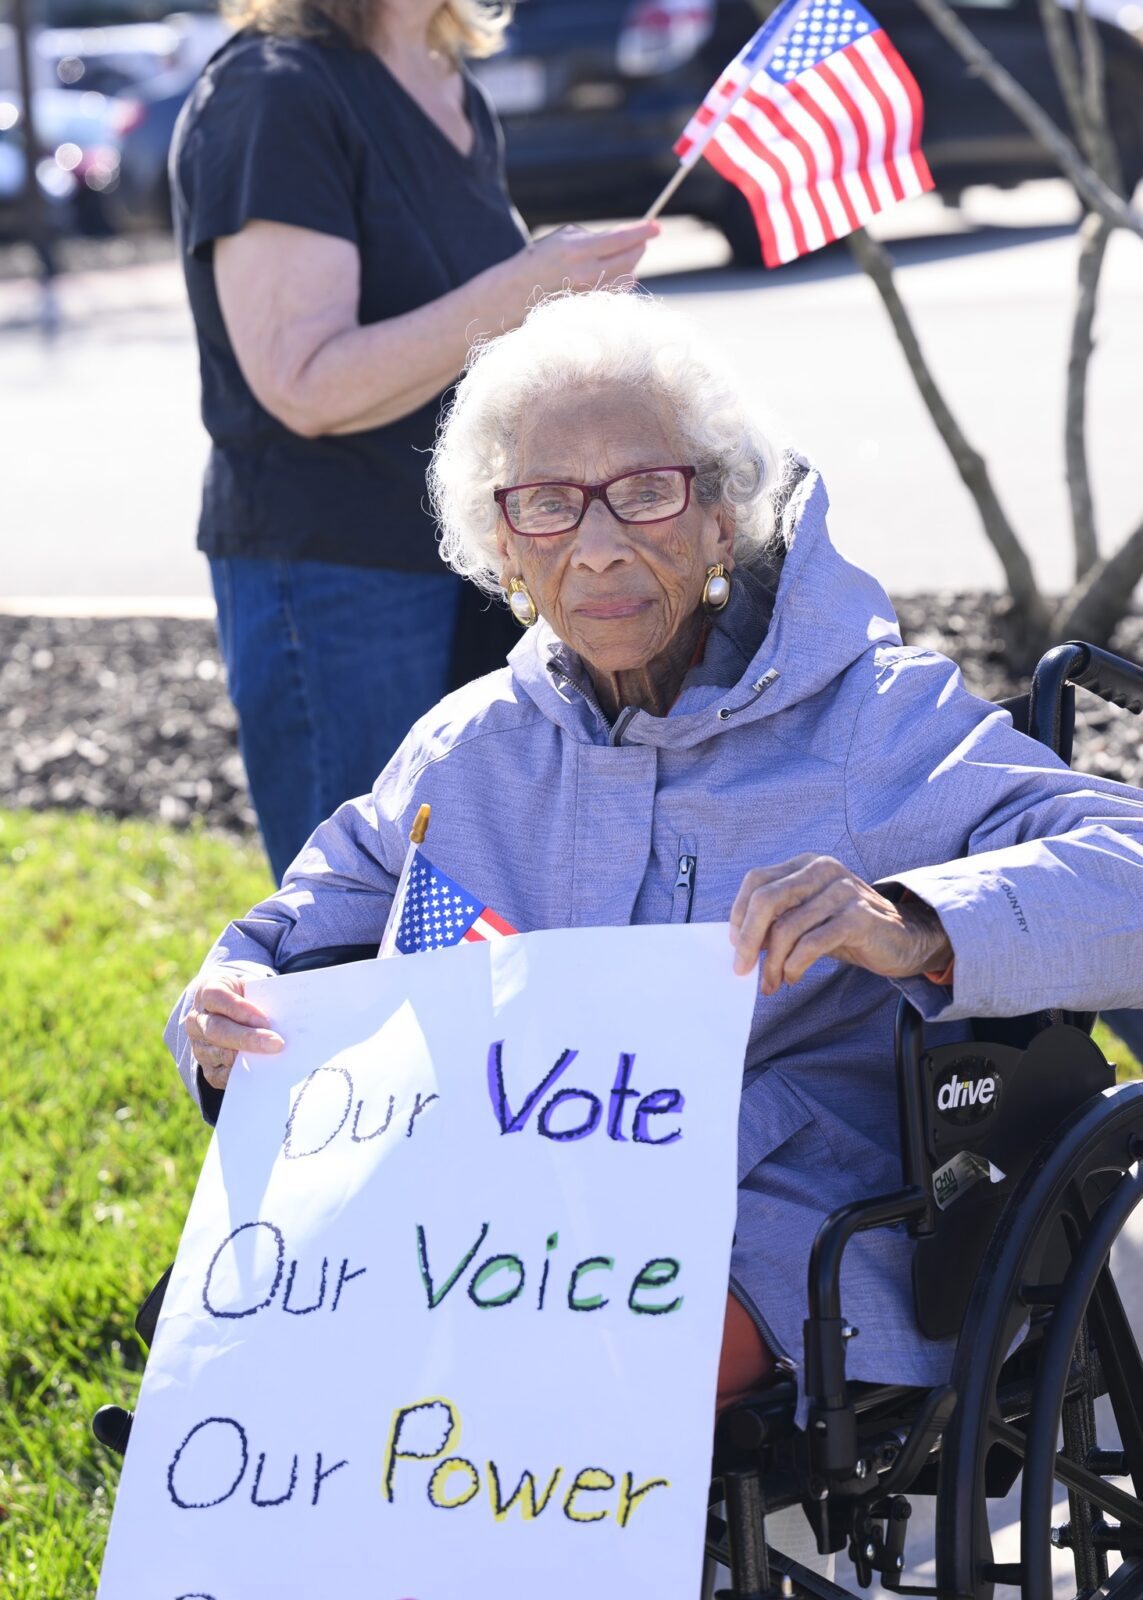 Our Vote
Our Voice
Our Power
drive
CHM
COUNTRY